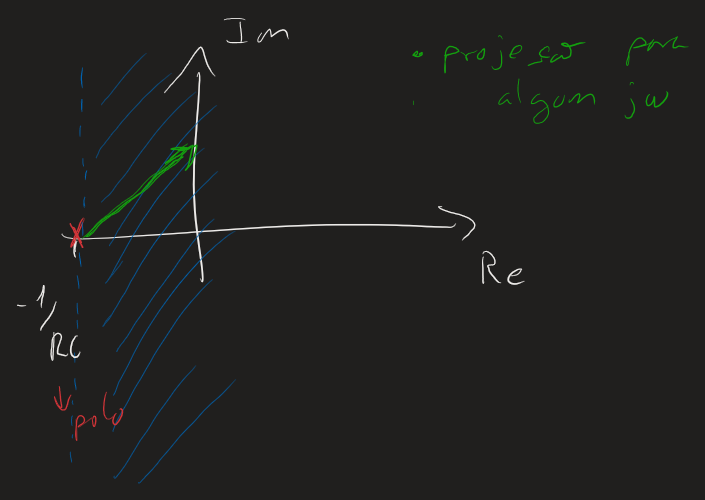 Im
• projetar para
algum jw
Re
-1/RC
↓ polo